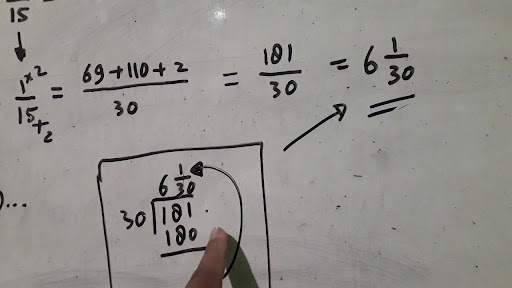 15
1×2/15×2 = 69+110+2/30 = 181/30 = 6 1/30
6 1/30
30 181
180
)...